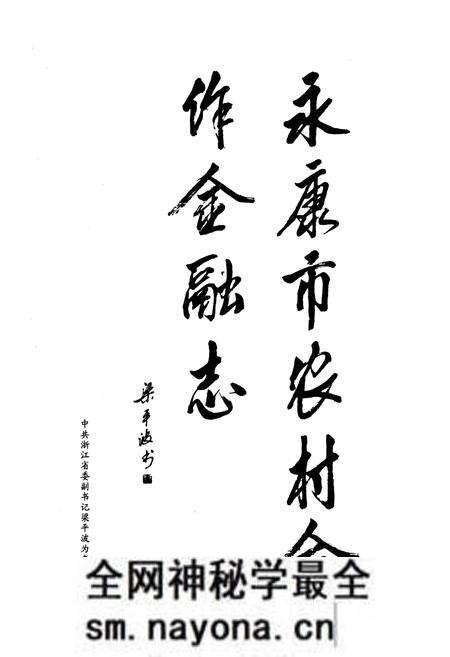 永康市农村合
作金融志
梁平波书
中共浙江省委副书记梁平波为
全网神秘学最全
sm.nayona.cn